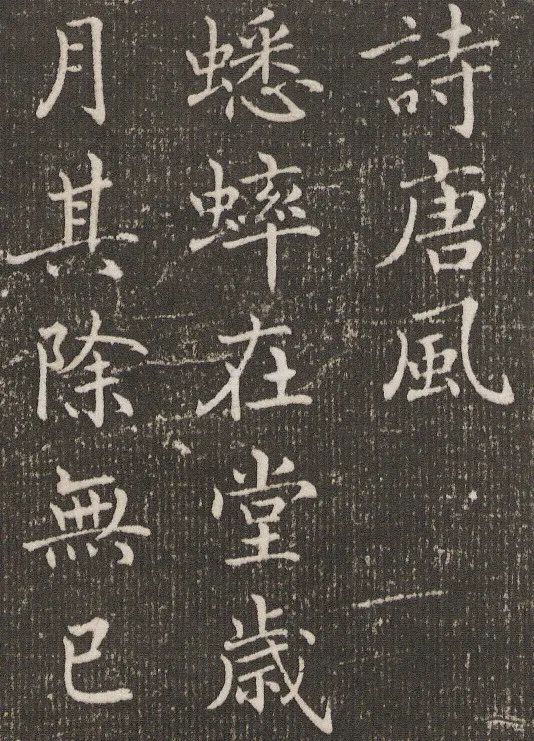 詩唐風
蟋蟀在堂歲
月其除無已